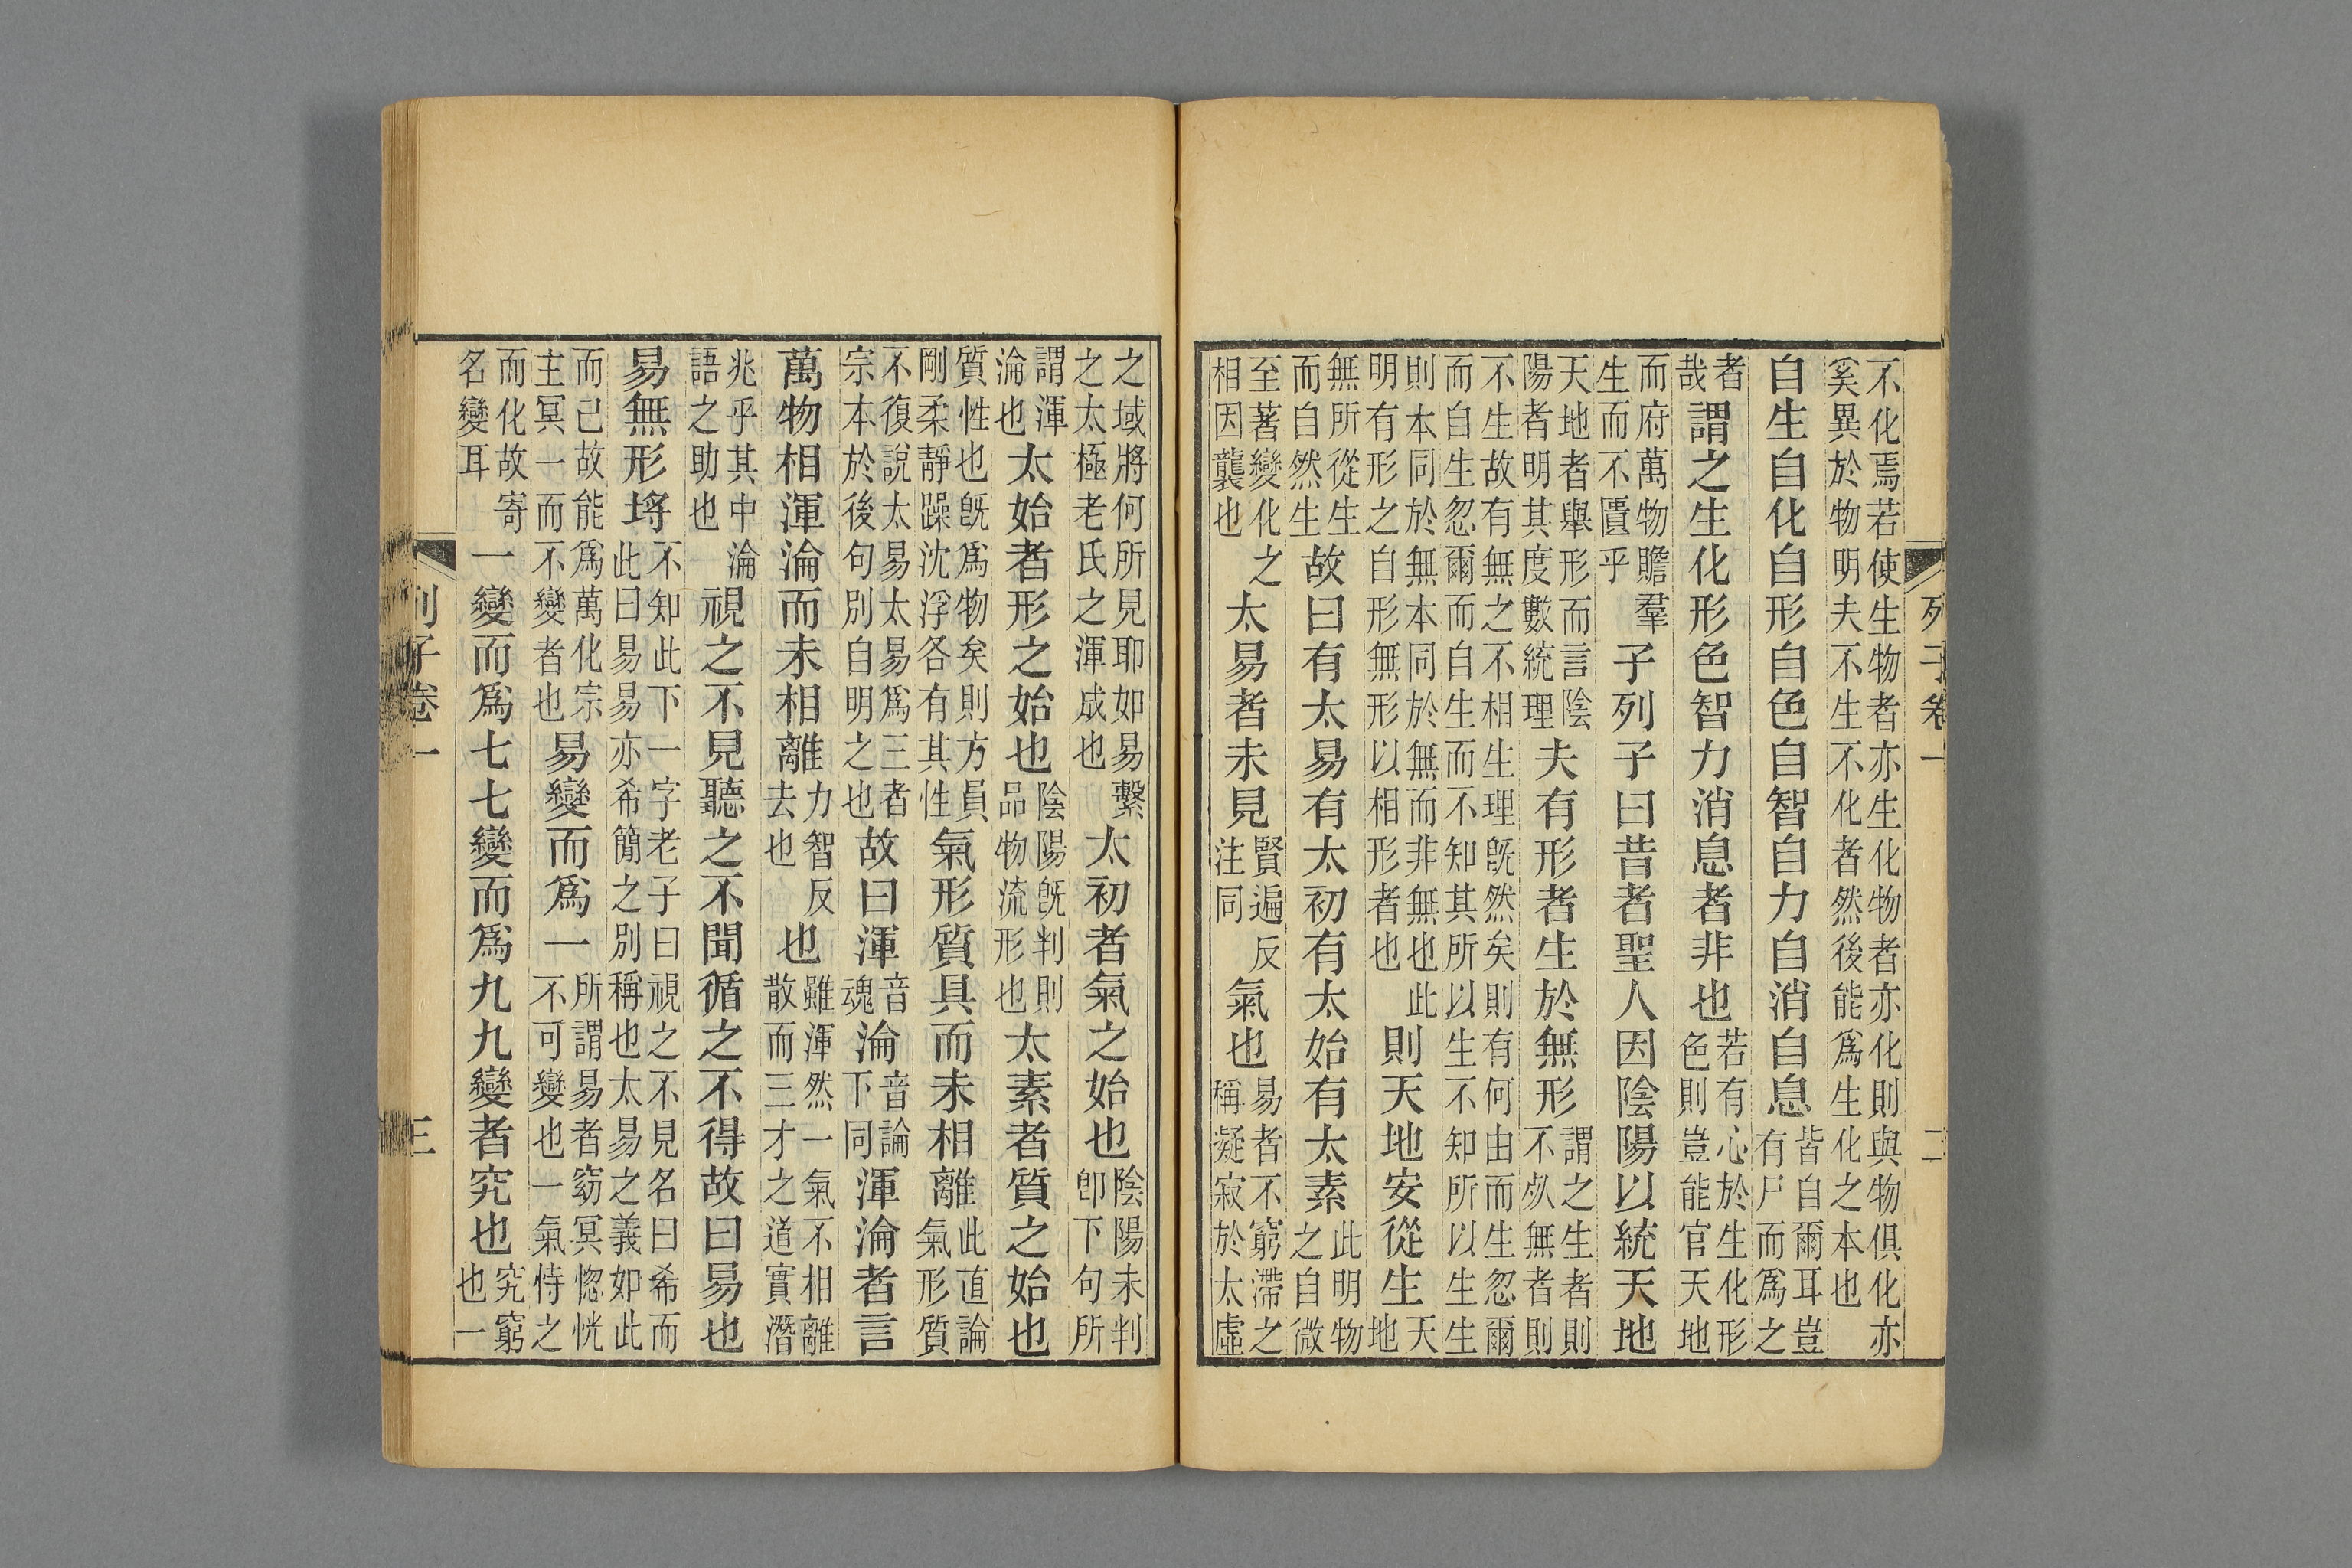 列子卷一
二
不化焉若使生物者亦生化物者亦化則與物俱化亦
奚異於物明夫不生不化者然後能爲生化之本也
自生自化自形自色自智自力自消自息皆自爾耳豈有尸而爲之
者哉謂之生化形色智力消息者非也若有心於生化形色則豈能官天地
而府萬物贍羣生而不匱乎子列子曰昔者聖人因陰陽以統天地
天地者舉形而言陰陽者明其度數統理夫有形者生於無形謂之生者則不死無者則
不生故有無之不相生理旣然矣則有何由而生忽爾
而自生忽爾而自生而不知其所以生不知所以生生
則本同於無本同於無而非無也此明有形之自形無形以相形者也則天地安從生天地
無所從生而自然生故曰有太易有太初有太始有太素此明物之自微
至著變化之相因襲也太易者未見賢遍反注同氣也易者不窮滯之稱凝寂於太虛
之域將何所見耶如易繫之太極老氏之渾成也太初者氣之始也陰陽未判卽下句所
謂渾淪也太始者形之始也陰陽旣判則品物流形也太素者質之始也
質性也旣爲物矣則方員剛柔靜躁沈浮各有其性氣形質具而未相離此直論氣形質
不復說太易太易爲三者宗本於後句別自明之也故曰渾音魂淪音論下同渾淪者言
萬物相渾淪而未相離力智反去也也雖渾然一氣不相離散而三才之道實潛
兆乎其中淪語之助也視之不見聽之不聞循之不得故曰易也
易無形埒不知此下一字老子曰視之不見名曰希而此曰易易亦希簡之別稱也太易之義如此
而已故能爲萬化宗主冥一而不變者也易變而爲一所謂易者窈冥惚恍不可變也一氣恃之
而化故寄名變耳一變而爲七七變而爲九九變者究也究窮也一
列子卷一
三